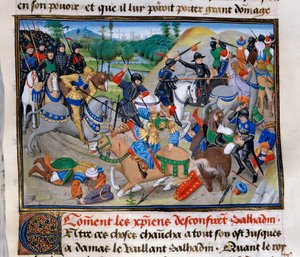 en son pouoir et que il luy poroit porter grant domage
Coment les xpiens desconfirent Salhadin.
Entre ces choses chaucha a tout son ost Jusques
a damas le vaillant Salhadin. Quant le roy